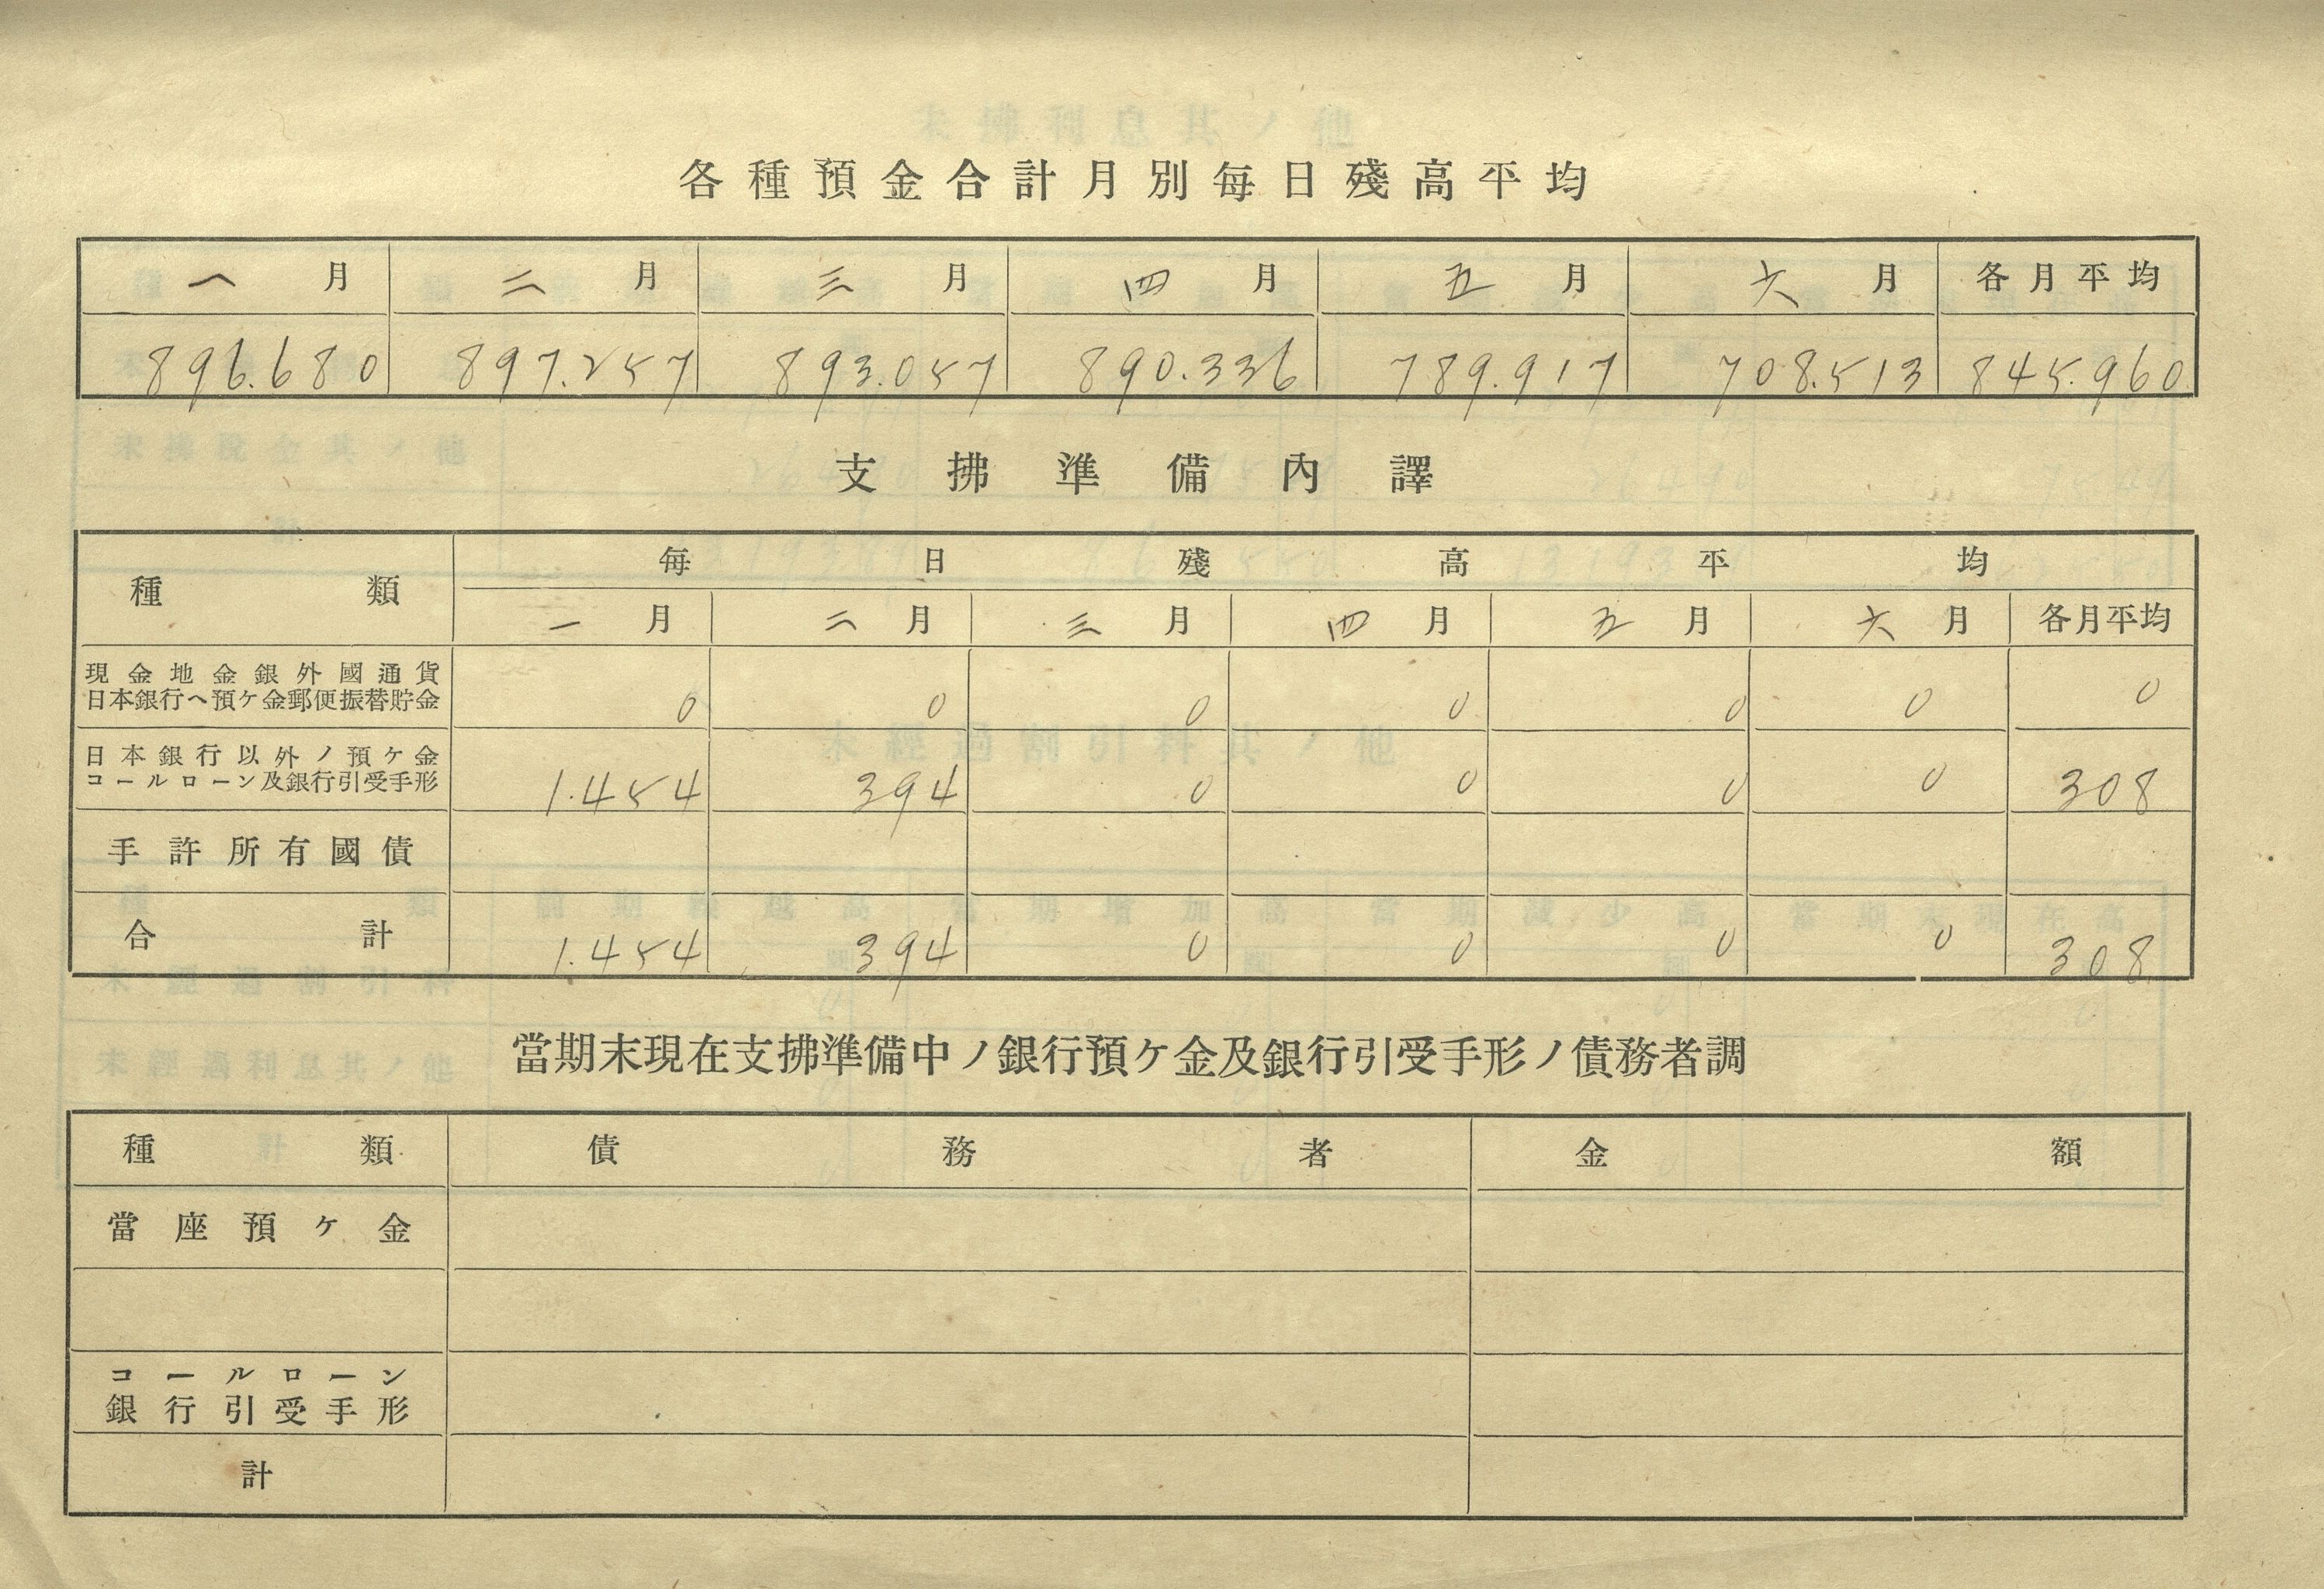 各種預金合計月別每日殘高平均
一月 二月 三月 四月 五月 六月 各月平均
896.680 897.257 893.057 890.336 789.917 708.513 845.960
支拂準備內譯
種類 每日殘高平均
一月 二月 三月 四月 五月 六月 各月平均
現金地金銀外國通貨
日本銀行ヘ預ケ金郵便振替貯金 0 0 0 0 0 0 0
日本銀行以外ノ預ケ金
コールローン及銀行引受手形 1.454 394 0 0 0 0 308
手許所有國債
合計 1.454 394 0 0 0 0 308
當期末現在支拂準備中ノ銀行預ケ金及銀行引受手形ノ債務者調
種類 債務者 金額
當座預ケ金
コールローン
銀行引受手形
計